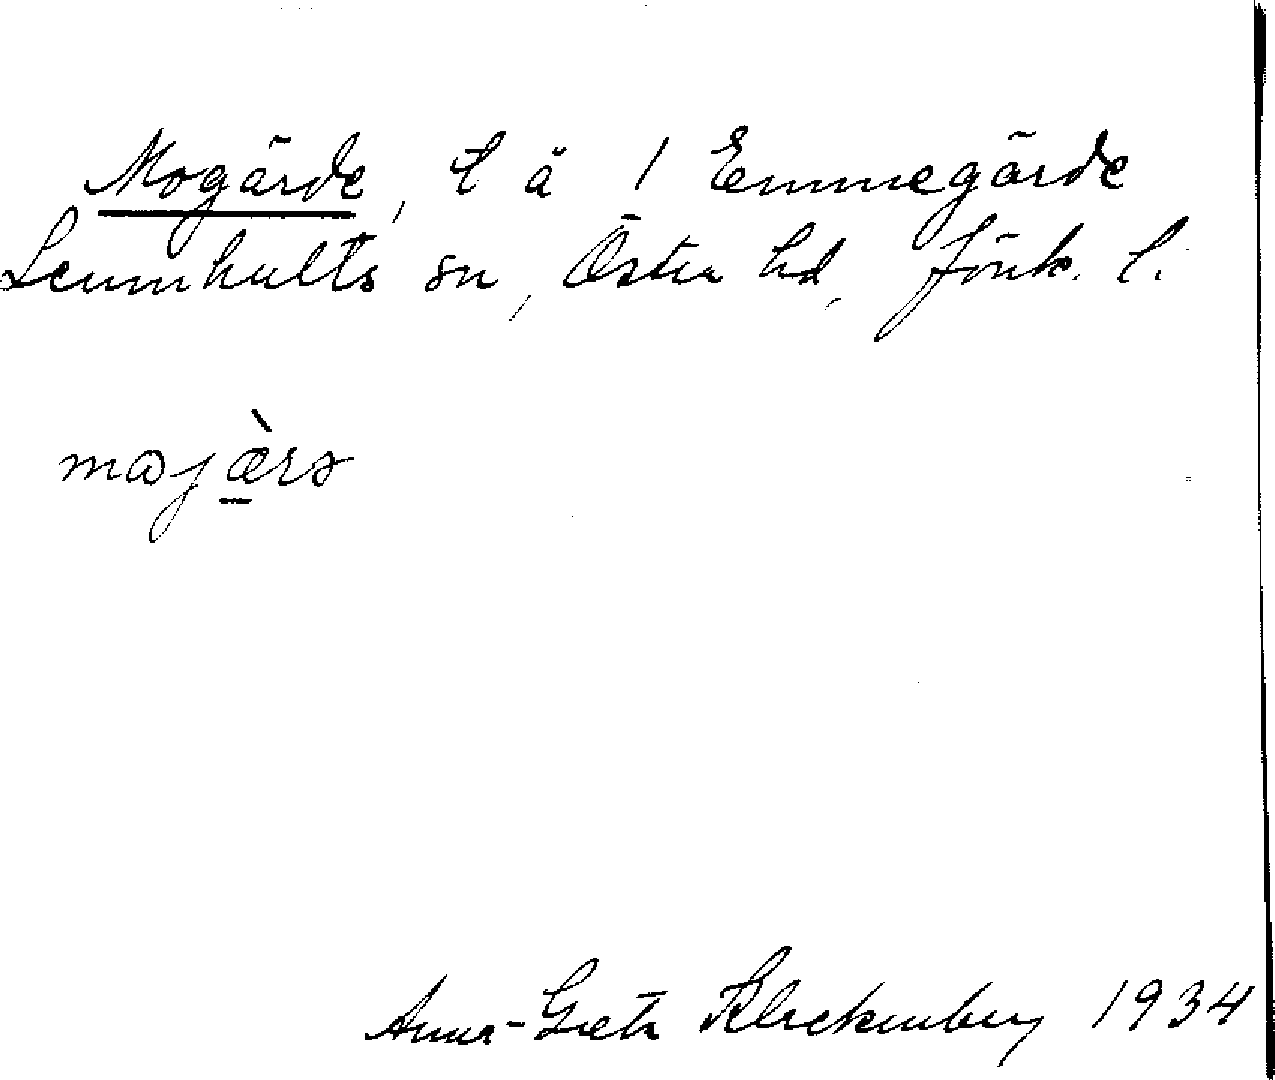 Mogärde, t å 1 Emmegärde
Lemnhults sn, Östra hd, Jönk. l.
mɷjæ̀rə
Anna-Greta Klockenberg 1934